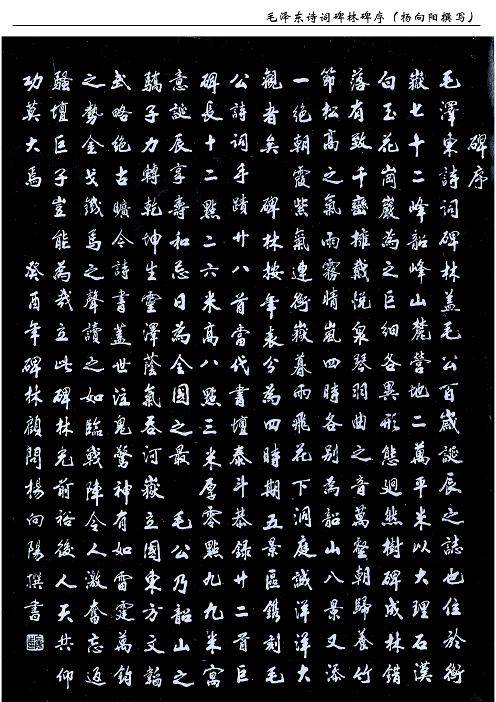 毛泽东诗词碑林碑序（杨向阳撰写）
碑序
毛澤東詩詞碑林蓋毛公百歲誕辰之誌也住於衡
嶽七十二峰韶峰山麓營地二萬平米以大理石漢
白玉花崗巖為之巨細各異形態迴然樹碑成林錯
落有致千巒擁戴悅泉琴羽曲之音萬壑朝歸養竹
節松高之氣雨霧晴嵐四時各別為韶山八景又添
一絕朝霞紫氣連衡嶽暮雨飛花下洞庭誠洋洋大
觀者矣 碑林按年表分為四時期五景區鐫刻毛
公詩詞手蹟廿八首當代書壇泰斗恭錄廿二首巨
碑長十二點二六米高八點三米厚零點九九米寓
意誕辰享壽和忌日為全國之最 毛公乃韶山之
驕子力轉乾坤生靈澤蔭氣吞河嶽立國東方文韜
武略絕古曠今詩書蓋世泣鬼驚神有如雷霆萬鈞
之勢金戈鐵馬之聲讀之如臨戰陣令人激奮忘返
騷壇巨子豈能為哉立此碑林光前裕後人天共仰
功莫大焉 癸酉年碑林顧問楊向陽撰書